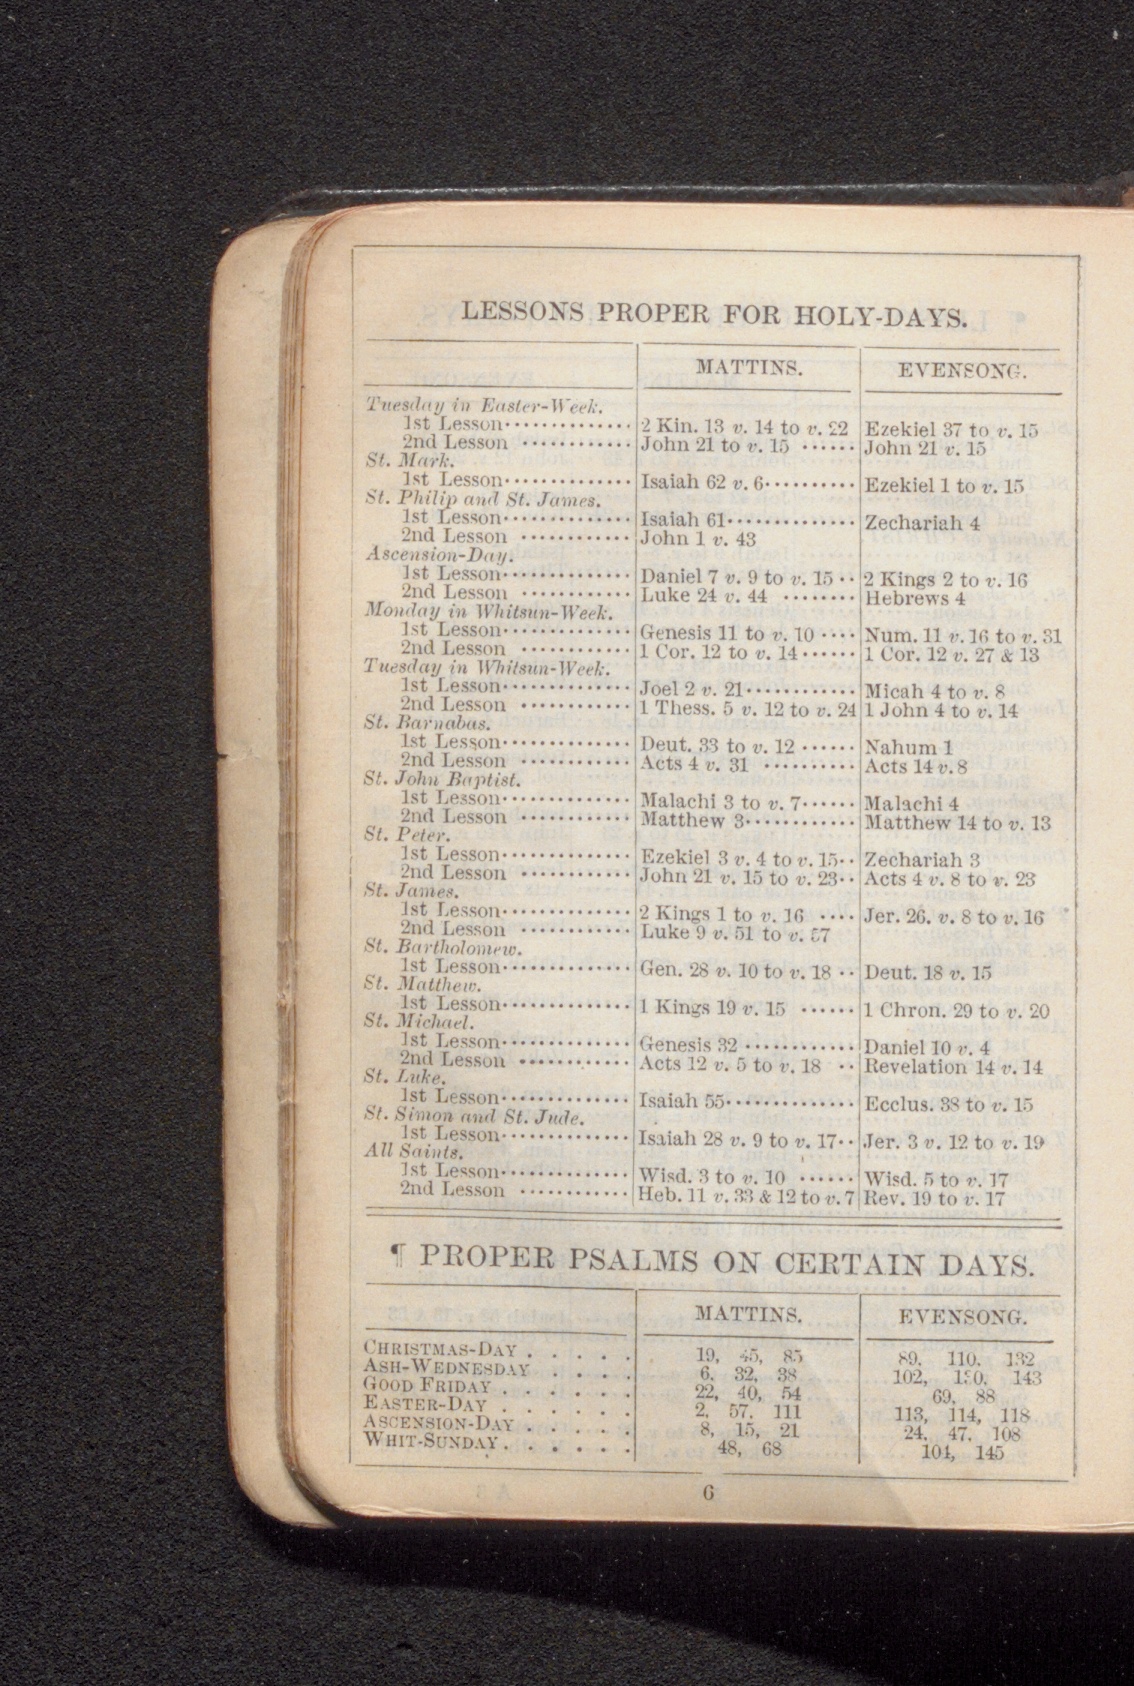 LESSONS PROPER FOR HOLY-DAYS.
MATTINS. EVENSONG.
Tuesday in Easter-Week.
1st Lesson 2 Kin. 13 v. 14 to v. 22 Ezekiel 37 to v. 15
2nd Lesson John 21 to v. 15 John 21 v. 15
St. Mark.
1st Lesson Isaiah 62 v. 6 Ezekiel 1 to v. 15
St. Philip and St. James.
1st Lesson Isaiah 61 Zechariah 4
2nd Lesson John 1 v. 43
Ascension-Day.
1st Lesson Daniel 7 v. 9 to v. 15 2 Kings 2 to v. 16
2nd Lesson Luke 24 v. 44 Hebrews 4
Monday in Whitsun-Week.
1st Lesson Genesis 11 to v. 10 Num. 11 v. 16 to v. 31
2nd Lesson 1 Cor. 12 to v. 14 1 Cor. 12 v. 27 & 13
Tuesday in Whitsun-Week.
1st Lesson Joel 2 v. 21 Micah 4 to v. 8
2nd Lesson 1 Thess. 5 v. 12 to v. 24 1 John 4 to v. 14
St. Barnabas.
1st Lesson Deut. 33 to v. 12 Nahum 1
2nd Lesson Acts 4 v. 31 Acts 14 v. 8
St. John Baptist.
1st Lesson Malachi 3 to v. 7 Malachi 4
2nd Lesson Matthew 3 Matthew 14 to v. 13
St. Peter.
1st Lesson Ezekiel 3 v. 4 to v. 15 Zechariah 3
2nd Lesson John 21 v. 15 to v. 23 Acts 4 v. 8 to v. 23
St. James.
1st Lesson 2 Kings 1 to v. 16 Jer. 26. v. 8 to v. 16
2nd Lesson Luke 9 v. 51 to v. 57
St. Bartholomew.
1st Lesson Gen. 28 v. 10 to v. 18 Deut. 18 v. 15
St. Matthew.
1st Lesson 1 Kings 19 v. 15 1 Chron. 29 to v. 20
St. Michael.
1st Lesson Genesis 32 Daniel 10 v. 4
2nd Lesson Acts 12 v. 5 to v. 18 Revelation 14 v. 14
St. Luke.
1st Lesson Isaiah 55 Ecclus. 38 to v. 15
St. Simon and St. Jude.
1st Lesson Isaiah 28 v. 9 to v. 17 Jer. 3 v. 12 to v. 19
All Saints.
1st Lesson Wisd. 3 to v. 10 Wisd. 5 to v. 17
2nd Lesson Heb. 11 v. 33 & 12 to v. 7 Rev. 19 to v. 17
¶ PROPER PSALMS ON CERTAIN DAYS.
MATTINS. EVENSONG.
CHRISTMAS-DAY 19, 45, 85 89, 110, 132
ASH-WEDNESDAY 6, 32, 38 102, 130, 143
GOOD FRIDAY 22, 40, 54 69, 88
EASTER-DAY 2, 57, 111 113, 114, 118
ASCENSION-DAY 8, 15, 21 24, 47, 108
WHIT-SUNDAY 48, 68 104, 145
6